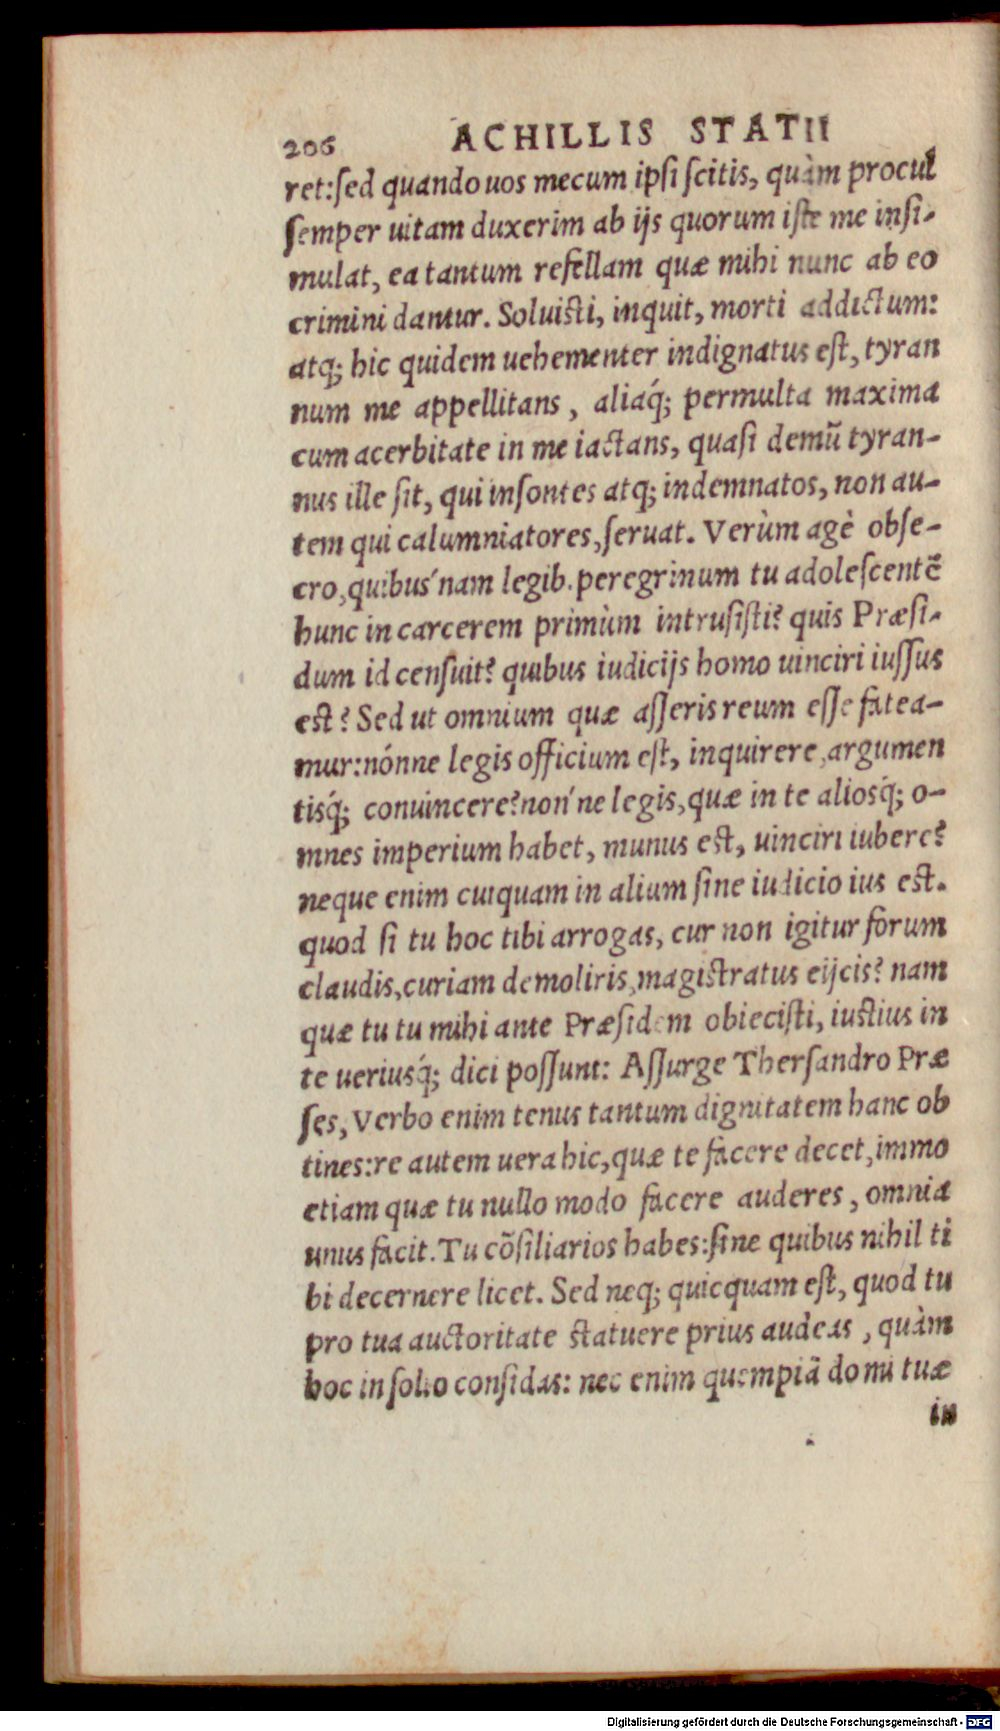 206 ACHILLIS STATII
ret:ſed quando uos mecum ipſi ſcitis, quàm procul
ſemper uitam duxerim ab ijs quorum iſte me inſi-
mulat, ea tantum refellam quæ mihi nunc ab eo
crimini dantur. Soluiſti, inquit, morti addictum:
atq; hic quidem uehementer indignatus eſt, tyran
num me appellitans, aliaq́; permulta maxima
cum acerbitate in me iactans, quaſi demũ tyran-
nus ille ſit, qui inſontes atq; indemnatos, non au-
tem qui calumniatores, ſeruat. Verùm agè obſe-
cro, quibus'nam legib. peregrinum tu adoleſcentẽ
hunc in carcerem primùm intruſiſti? quis Præſi-
dum id cenſuit? quibus iudicijs homo uinciri iuſſus
eſt? Sed ut omnium quæ aſſeris reum eſſe fatea-
mur: nónne legis officium eſt, inquirere, argumen
tisq́; conuincere? non'ne legis, quæ in te aliosq́; o-
mnes imperium habet, munus eſt, uinciri iubere?
neque enim cuiquam in alium ſine iudicio ius eſt.
quod ſi tu hoc tibi arrogas, cur non igitur forum
claudis, curiam demoliris, magiſtratus eijcis? nam
quæ tu tu mihi ante Præſidem obieciſti, iuſtius in
te ueriusq́; dici poſſunt: Aſſurge Therſandro Præ
ſes, Verbo enim tenus tantum dignitatem hanc ob
tines: re autem uera hic, quæ te facere decet, immo
etiam quæ tu nullo modo facere auderes, omnia
unus facit. Tu cõſiliarios habes: ſine quibus nihil ti
bi decernere licet. Sed neq; quicquam eſt, quod tu
pro tua auctoritate ſtatuere prius audeas, quàm
hoc in ſolio conſidas: nec enim quempiã domi tuæ
in
Digitalisierung gefördert durch die Deutsche Forschungsgemeinschaft - DFG